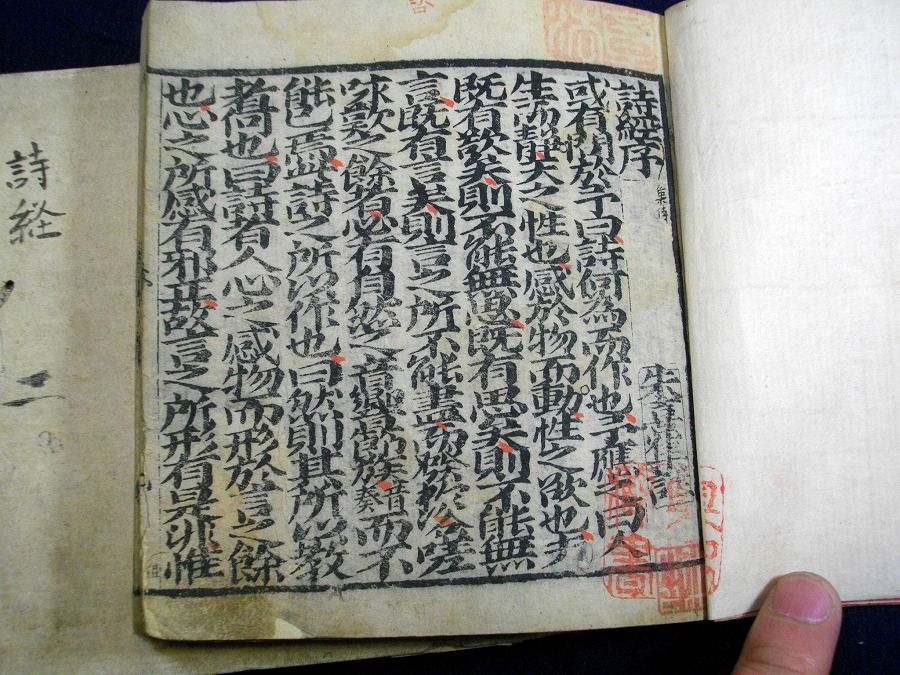 詩經序
朱熹集註
或有問於予曰詩何為而作也予應之曰人
生而静天之性也感於物而動性之欲也夫
既有欲矣則不能無思既有思矣則不能無
言既有言矣則言之所不能盡而發於咨嗟
咏歎之餘者必有自然之音響節族音奏而不
能已焉此詩之所以作也曰然則其所以教
者何也曰詩者人心之感物而形於言之餘
也心之所感有邪正故言之所形有是非惟
詩経
二